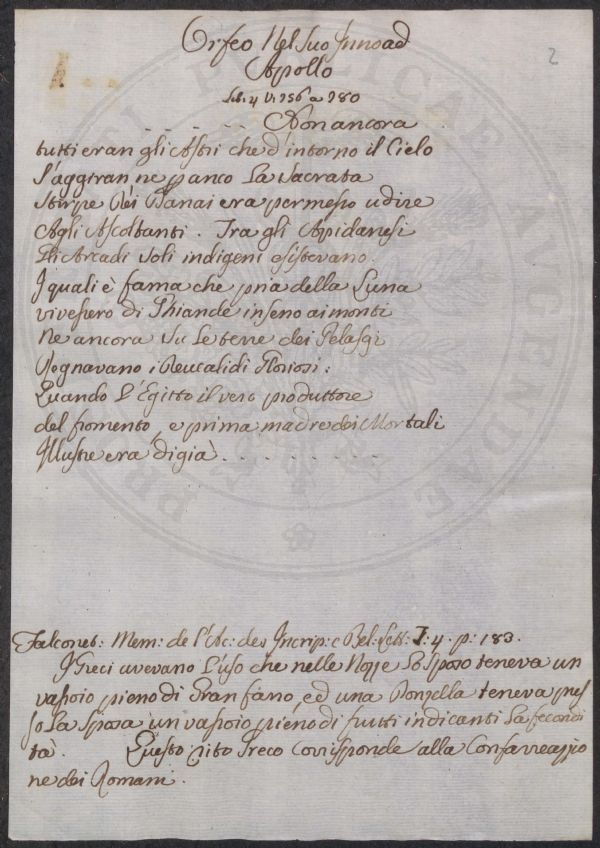 2
Orfeo Nel Suo Inno ad
Apollo
Lib: 4 V. 256 a 280
- - - - - - Non ancora
tutti eran gli Astri che d'intorno il Cielo
S'aggiran ne panco La Sacrata
Stirpe Dei Danai era permesso udire
Agli Ascoltanti. Tra gli Apidanesi
Gli Arcadi Soli indigeni esistevano.
I quali è fama che pria della Luna
vivessero di Ghiande in seno ai monti
Ne ancora Su Le terre dei Pelasgi
Regnavano i Deucalidi Gloriosi:
Quando L'Egitto il vero produttore
del fromento, e prima madre dei Mortali
Illustre era digià . . . . . . . .
Falconet: Mem: de l'Ac: des Inscrip: e Bel: Lett: T: 4. p: 183.
I Greci avevano L'uso che nelle Nozze Lo Sposo teneva un
vassoio pieno di Gran fano, ed una Donzella teneva pres
so La Sposa un vassoio pieno di frutti indicanti La fecondi
tà. Questo rito Greco corrisponde alla Confarreazzio
ne dei Romani.